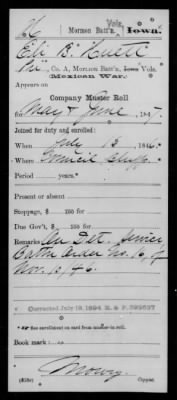 H | Mormon Batt'n, Vols. | Iowa.
Eli B. Hewitt
Pvt., Co. A, Mormon Batt'n, Iowa Vols.
(Mexican War.)
Appears on
Company Muster Roll
for May & June, 1847.
Joined for duty and enrolled:
When July 16, 1846.
Where Council Bluffs
Period years.*
Present or absent
Stoppage, $ 100 for
Due Gov't, $ 100 for
Remarks On Det. Service
Batn Order No. 16 of
Nov. 10, 46.
Corrected July 18, 1894 R. & P.
*See enrollment on card from muster-in roll.
Book mark:
Mowry
(546) Copyist.